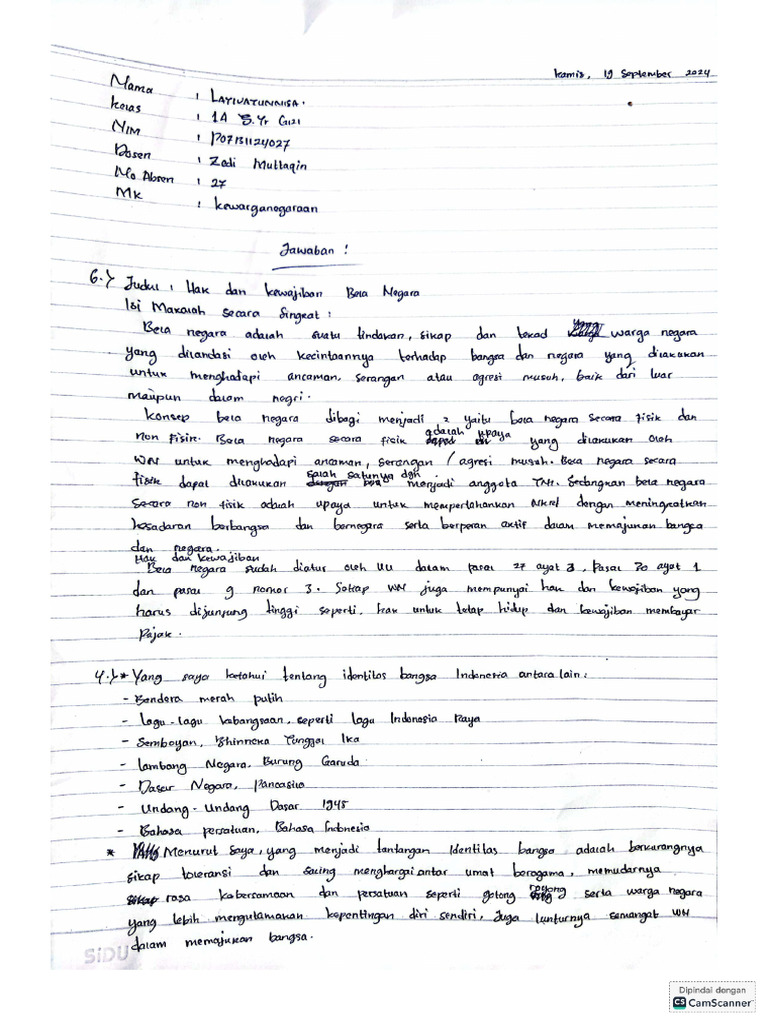 Kamis, 19 September 2024
Nama : LAYINATUNNISA.
Kelas : 1A S.Tr GIZI
NIM : P07131124027
Dosen : Zedi Muttaqin
No Absen : 27
MK : Kewarganegaraan
Jawaban :
6.) Judul : Hak dan Kewajiban Bela Negara
Isi Makalah secara Singkat :
Bela negara adalah suatu tindakan, sikap dan tekad yang warga negara
yang dilandasi oleh kecintaannya terhadap bangsa dan negara yang dilakukan
untuk menghadapi ancaman, serangan atau agresi musuh, baik dari luar
maupun dalam negri.
Konsep bela negara dibagi menjadi 2 yaitu bela negara secara fisik dan
non fisik. Bela negara secara fisik adalah upaya yang dilakukan oleh
WN untuk menghadapi ancaman, serangan / agresi musuh. Bela negara secara
fisik dapat dilakukan salah satunya dgn menjadi anggota TNI. Sedangkan bela negara
secara non fisik adalah upaya untuk mempertahankan NKRI dengan meningkatkan
kesadaran berbangsa dan bernegara serta berperan aktif dalam memajukan bangsa
dan negara.
Hak dan kewajiban
Bela negara sudah diatur oleh UU dalam pasal 27 ayat 3, Pasal 30 ayat 1
dan pasal 9 nomor 3. Setiap WN juga mempunyai hak dan kewajiban yang
harus dijunjung tinggi seperti, hak untuk tetap hidup dan kewajiban membayar
Pajak.
4.) * Yang saya ketahui tentang identitas bangsa Indonesia antara lain :
- Bendera merah putih
- Lagu-lagu kebangsaan, seperti lagu Indonesia Raya
- Semboyan, Bhinneka Tunggal Ika
- Lambang Negara, Burung Garuda
- Dasar Negara, Pancasila
- Undang-Undang Dasar 1945
- Bahasa persatuan, Bahasa Indonesia
* Menurut saya, yang menjadi tantangan Identitas bangsa adalah berkurangnya
sikap toleransi dan saling menghargai antar umat beragama, memudarnya
rasa kebersamaan dan persatuan seperti gotong royong serta warga negara
yang lebih mengutamakan kepentingan diri sendiri, Juga lunturnya semangat WN
dalam memajukan bangsa.
SiDU
Dipindai dengan
CS CamScanner